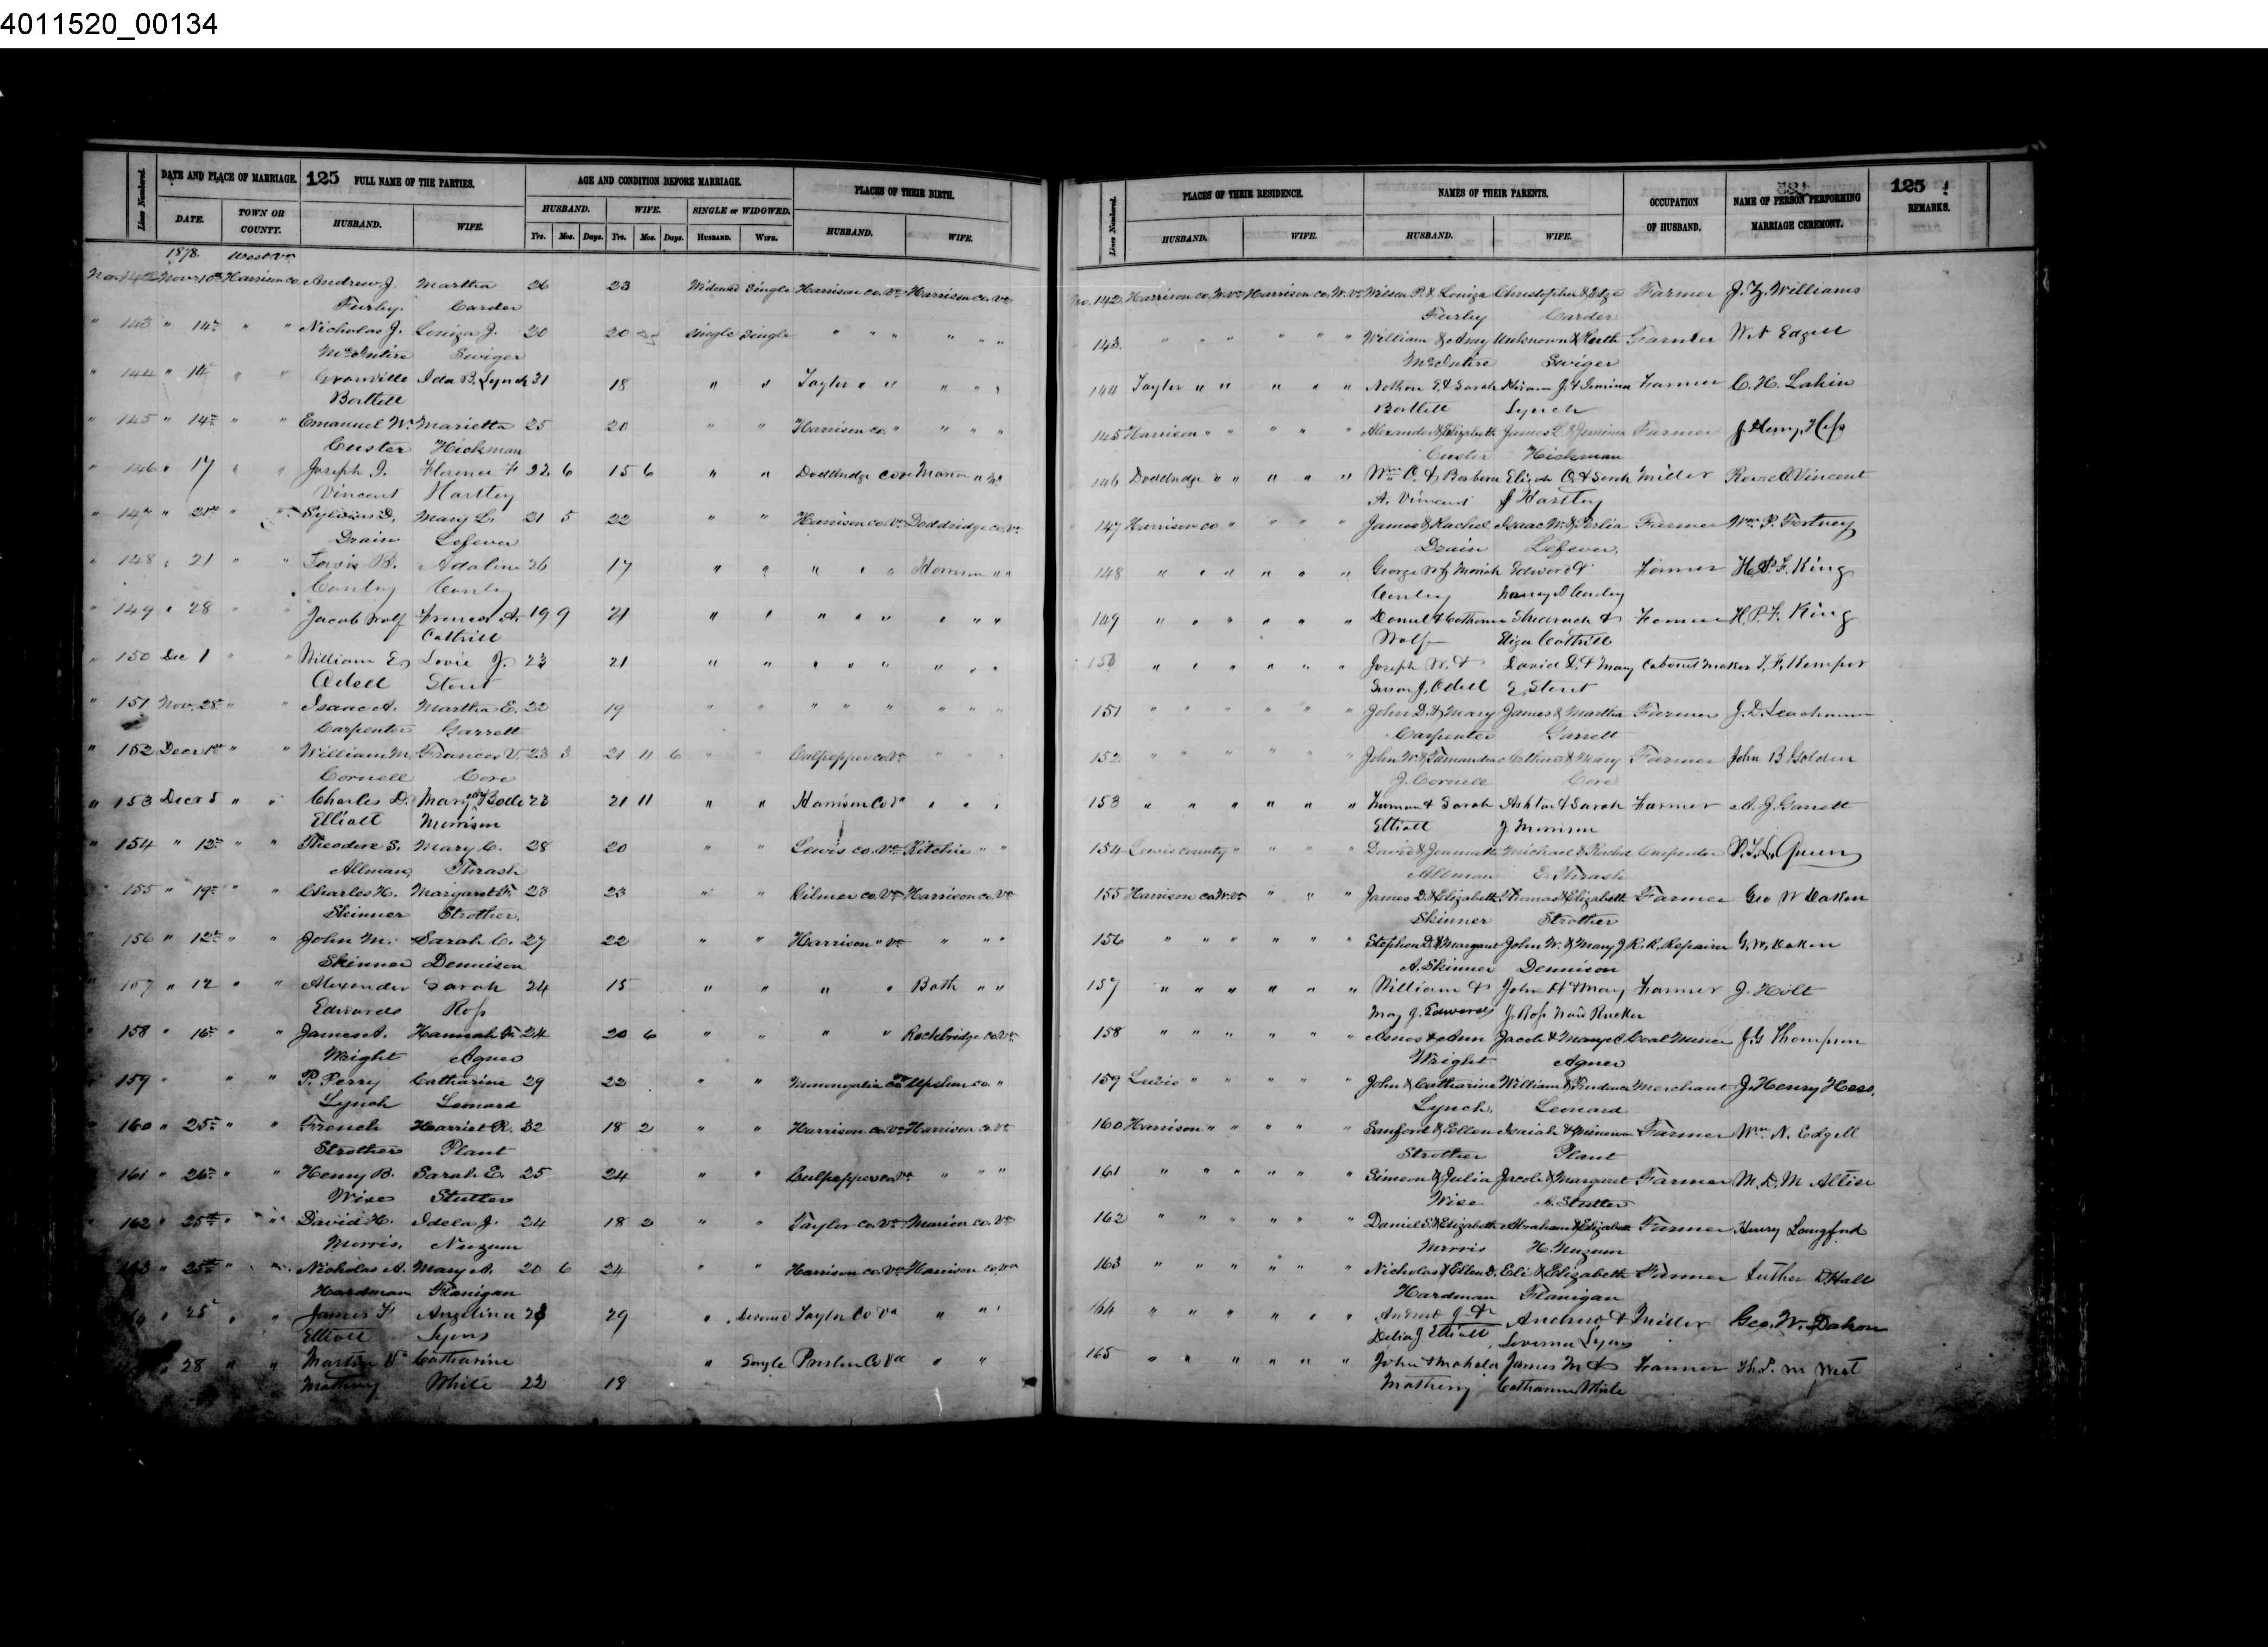 4011520_00134
Lines Numbered. DATE AND PLACE OF MARRIAGE. 125 FULL NAME OF THE PARTIES. AGE AND CONDITION BEFORE MARRIAGE. PLACES OF THEIR BIRTH.
DATE. TOWN OR COUNTY. HUSBAND. WIFE. HUSBAND. WIFE. SINGLE or WIDOWED. HUSBAND. WIFE.
Yrs. Mos. Days. Yrs. Mos. Days. HUSBAND. WIFE.
1878. West Va
No. 142 Nov. 10th Harrison co. Andrew J. Martha 26 23 Widowed Single Harrison co. Va Harrison co. Va
Furby. Carder
" 143 " 14th " " Nicholas J. Louiza J. 20 20 Single Single " " " " " "
McIntire Swiger
" 144 " 14 " " Granville Ida B. Lynch 31 18 " " Taylor " " " " "
Bartlett
" 145 " 14th " " Emanuel W. Marietta 25 20 " " Harrison co. " " " "
Custer Hickman
" 146 " 17 " " Joseph I. Florence F 22 6 15 6 " " Doddridge co Va Marion " Va
Vincent Hartley
" 147 " 21st " " Sylvius D. Mary L. 21 5 22 " " Harrison co. Va Doddridge co. Va
Drain Lefever
" 148 " 21 " " Lewis B. Adaline 26 17 " " " " " Harrison " "
Conley Conley
" 149 " 28 " " Jacob Wolf Frances A. 19 9 21 " " " " " " " "
Cottrill
" 150 Dec 1 " " William E. Lovie J. 23 21 " " " " " " " "
Odell Stout
" 151 Nov. 28th " " Isaac A. Martha E. 22 19 " " " " " " " "
Carpenter Garrett
" 152 Decr 1st " " William M. Frances V. 23 3 21 11 6 " " Culpepper co. Va " " "
Cornell Core
" 153 Decr 5 " " Charles D. Mary Belle 22 21 11 " " Harrison Co Va " " "
Elliott Morrison
" 154 " 12th " " Theodore S. Mary C. 28 20 " " Lewis co. Va Ritchie " "
Allman Thrash
" 155 " 19th " " Charles H. Margaret F. 23 23 " " Gilmer co. Va Harrison co. Va
Skinner Strother.
" 156 " 12th " " John M. Sarah C. 27 22 " " Harrison " Va " " "
Skinner Dennison
" 157 " 12 " " Alexander Sarah 24 15 " " " " Bath " "
Edwards Ross
" 158 " 16th " " James A. Hannah F. 24 20 6 " " " " Rockbridge co. Va
Wright Agner
" 159 " " " P. Perry Catharine 29 22 " " Monongalia co Va Upshur co. "
Lynch Leonard
" 160 " 25th " " French Harriet R. 32 18 2 " " Harrison co. Va Harrison co. Va
Strother Plant
" 161 " 26th " " Henry B. Sarah E. 25 24 " " Culpepper co. Va " " "
Wise Stutler
" 162 " 25th " " David H. Idela J. 24 18 2 " " Taylor co. Va Marion co. Va
Morris. Nuzum
163 " 25th " " Nicholas A. Mary A. 20 6 24 " " Harrison co. Va Harrison co. Va
Hardman Flanigan
" 25 " " James F. Angelina 29 " Divorced Taylor Co Va " " "
Elliott Lyons
" 28 " " Martin V. Catharine " Single Preston Co Va " "
Matheny White 22 18
Lines Numbered. PLACES OF THEIR RESIDENCE. NAMES OF THEIR PARENTS. OCCUPATION OF HUSBAND. NAME OF PERSON PERFORMING MARRIAGE CEREMONY. 125 REMARKS.
HUSBAND. WIFE. HUSBAND. WIFE.
No. 142 Harrison co. W. Va Harrison co. W. Va Wilson P. & Louiza Christopher & Farmer J. Z. Williams
Furby Carder
143. " " " " " " William & Amy Unknown & Ruth Farmer W N Edgell
McIntire Swiger
144 Taylor " " " " " Nathan & Sarah Hiram J. & Jemima Farmer C. H. Lakin
Bartlett Lynch
145 Harrison " " " " " Alexander & Elizabeth James L. & Jemima Farmer J Henry Hess
Custer Hickman
146 Doddridge " " " " " Wm O. & Barbara Elijah O. & Sarah Miller Vincent
A. Vincent J Hartley
147 Harrison co. " " " " James & Rachel Isaac W. & Farmer Wm P. Fortney
Drain Lefever.
148 " " " " " " George W & Moriah Edward & Farmer H. P. F. King
Conley Nancy A Conley
149 " " " " " " Daniel & Catharine Shadrach & Farmer H. P. F. King
Wolf Eliza Cottrill
150 " " " " " " Joseph W. & David D. & Mary Cabinet Maker
Susan J. Odell E. Stout
151 " " " " " " John D. & Mary James & Martha Farmer J. D. Leachman
Carpenter Garrett
152 " " " " " " John W. & Arthur & Mary Farmer John B Golden
J. Cornell Core
153 " " " " " " Truman & Sarah Ashton & Sarah Farmer A. J. Garrett
Elliott J Morrison
154 Lewis county " " " " David & Michael & Rachel Carpenter Queen
Allman E. Thrash
155 Harrison co. W. Va " " " James D. & Elizabeth Thomas & Elizabeth Farmer Geo W Dakon
Skinner Strother
156 " " " " " " Stephen D. & Margaret John W. & Mary J R. R. Repairer G. W. Dakon
A. Skinner Dennison
157 " " " " " " William & John H & Mary Farmer J. Holt
May J. Edwards J. Ross now Rucker
158 " " " " " " Amos & Ann Jacob & Mary Coal Miner J. G Thompson
Wright Agner
159 Lewis " " " " " John & Catharine William & Prudence Merchant J. Henry Hess.
Lynch. Leonard
160 Harrison " " " " " Sanford & Ellen Isaiah & Farmer Wm. N. Edgell
Strother Plant
161 " " " " " " Simeon & Julia Jacob & Margaret Farmer M. D. M
Wise A. Stutler
162 " " " " " " Daniel S. & Elizabeth Abraham & Elizabeth Farmer Henry Langford
Morris H. Nuzum
163 " " " " " " Nicholas & Ellen D. Eli & Elizabeth Farmer Luther D Hall
Hardman Flanigan
164 " " " " " " J. & Andrew & Miller Geo. W. Dakon
Delia J Elliott Loverna Lyons
165 " " " " " " John & Mahala James M & Farmer West
Matheny Catharine White